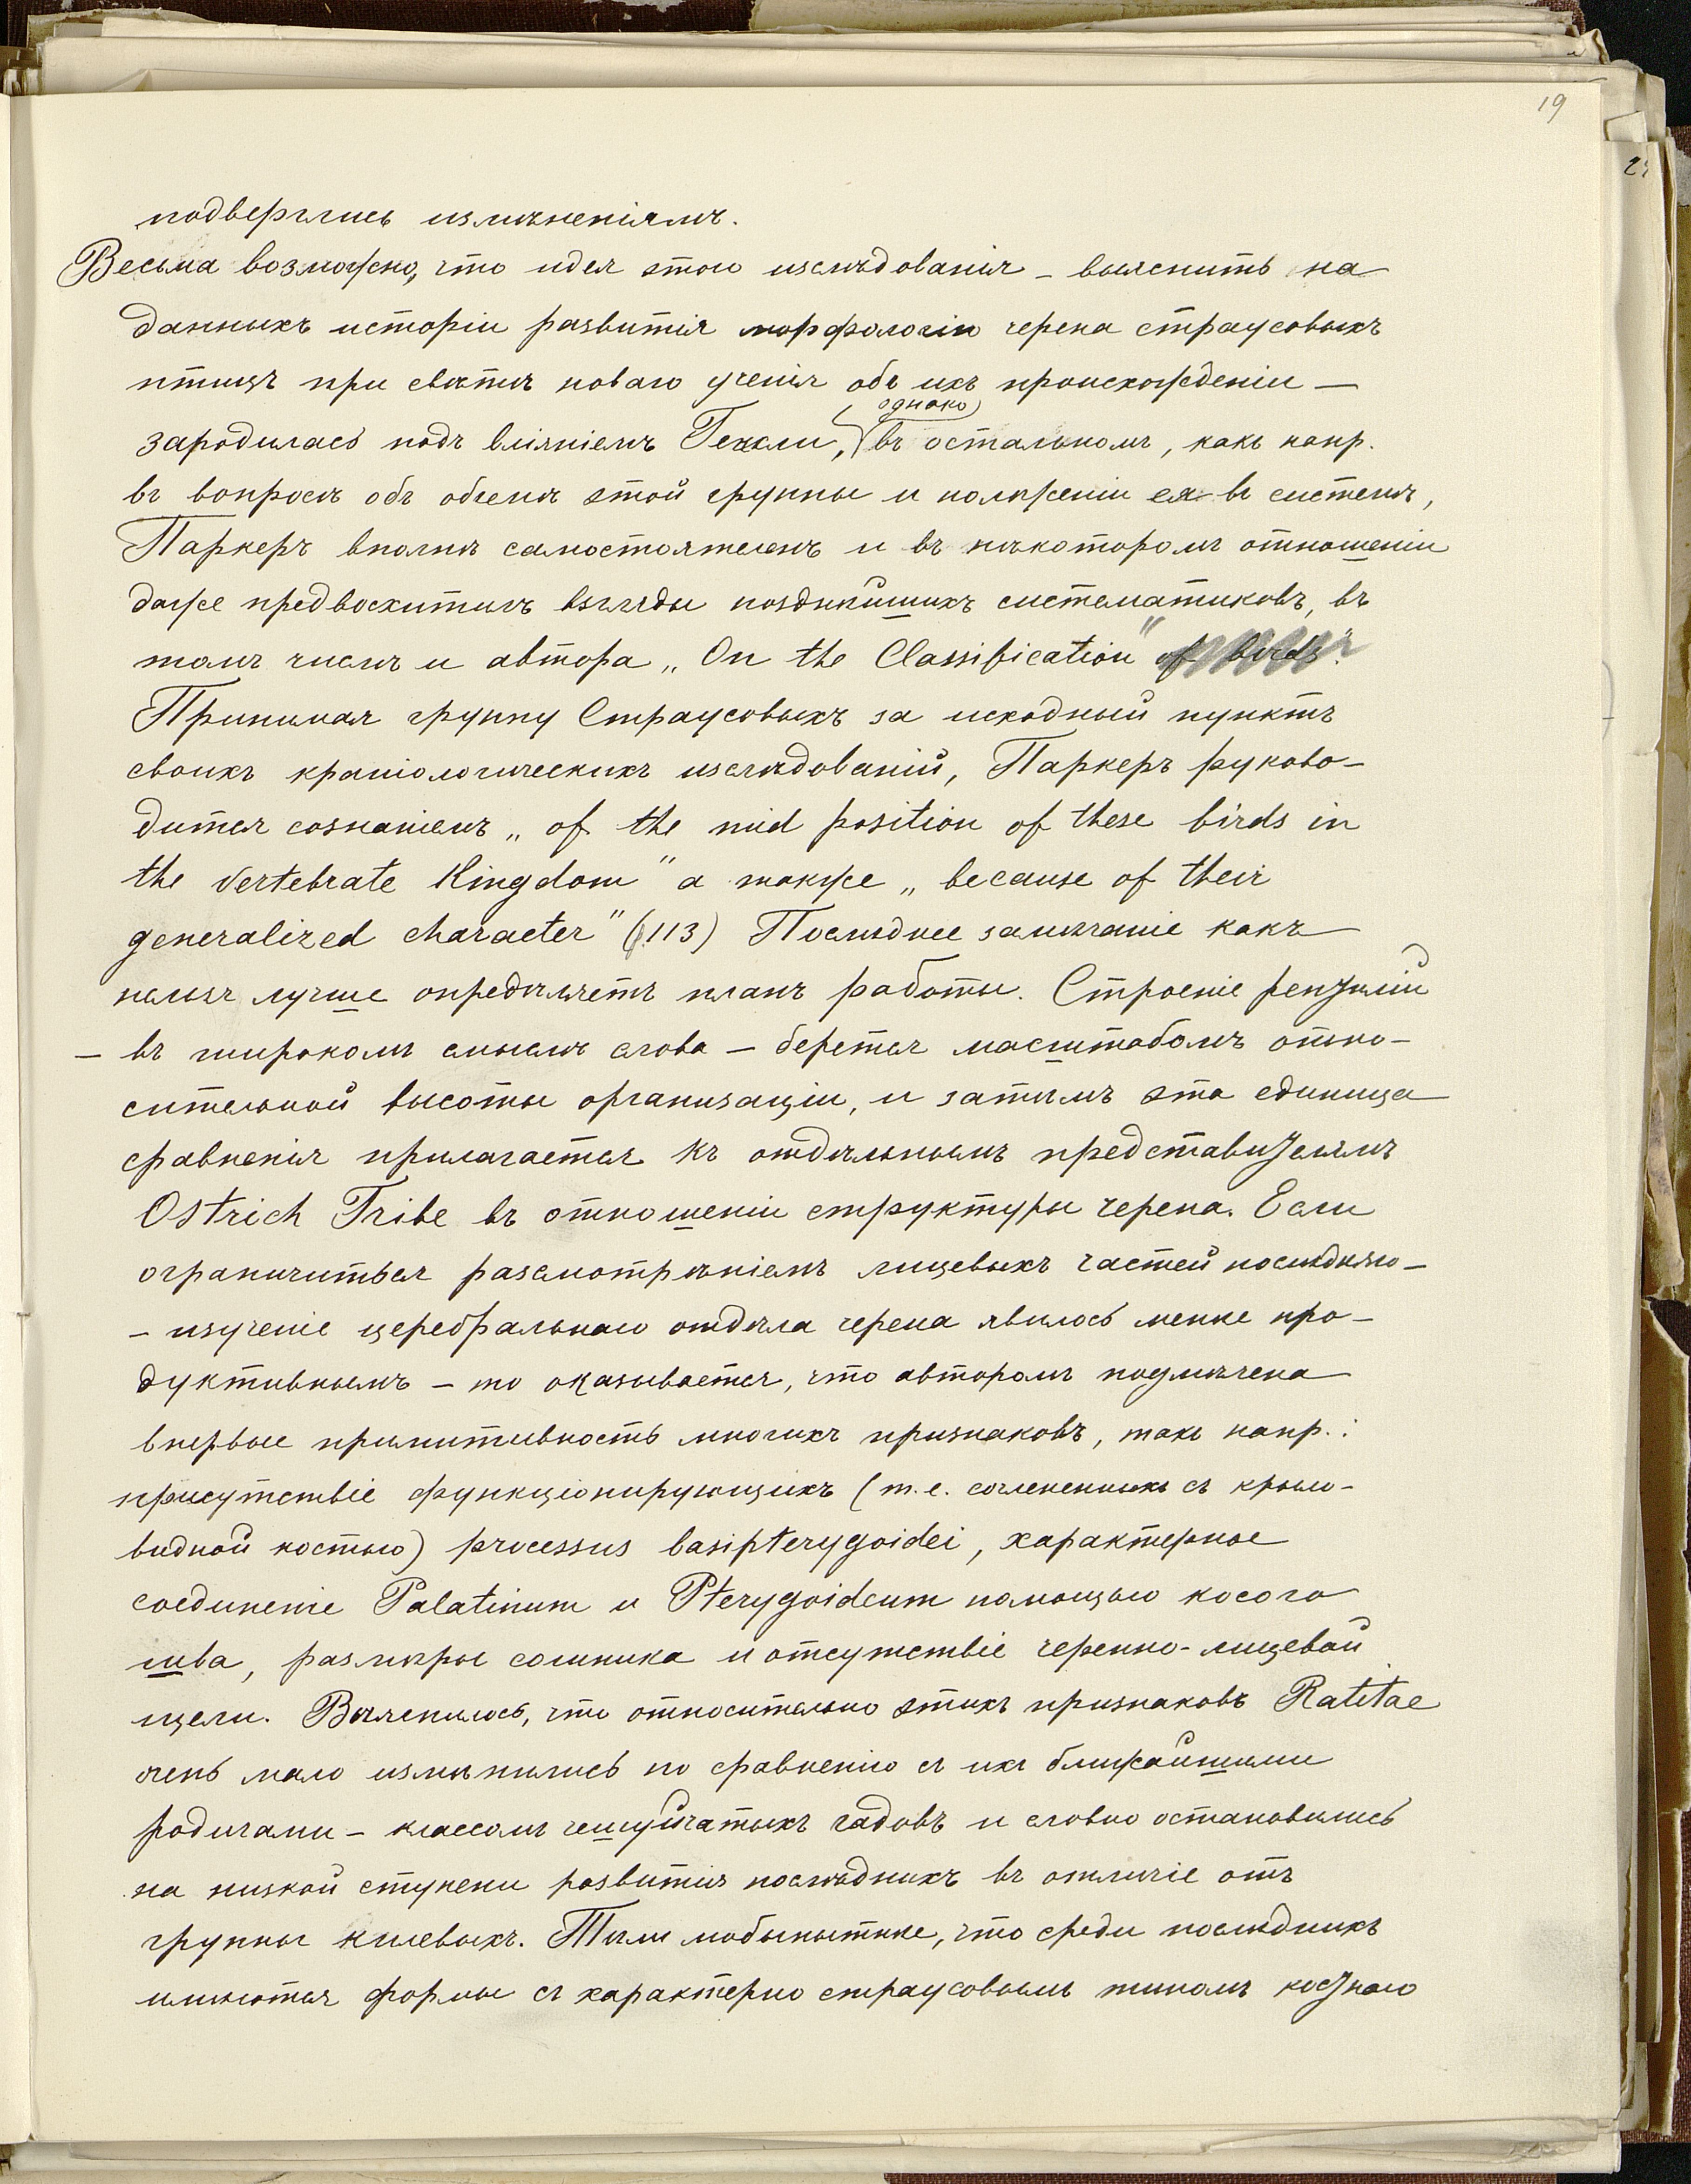 19
подверглись измѣненіямъ.
Весьма возможно, что идея этого изслѣдованія – выяснить на
данныхъ исторіи развитія морфологію черепа страусовыхъ
птицъ при свѣтѣ новаго ученія объ ихъ происхожденіи —
однако
зародилась подъ вліяніемъ Гексли, въ остальномъ, какъ напр.
въ вопросѣ объ объемѣ этой группы и положеніи ея въ системѣ,
Паркеръ вполнѣ самостоятеленъ и въ нѣкоторомъ отношеніи
даже предвосхитилъ взгляды позднѣйшихъ систематиковъ, въ
томъ числѣ и автора „On the Classification" of birds".
Принимая группу Страусовыхъ за исходный пунктъ
своихъ краніологическихъ изслѣдованій, Паркеръ руково-
дится сознаніемъ „of the mid position of these birds in
the Vertebrate Kingdom" а также „because of their
generalized character" (113) Послѣднее замѣчаніе какъ
нельзя лучше опредѣляетъ планъ работы. Строеніе рептилій
– въ широкомъ смыслѣ слова – берется масштабомъ отно-
сительной высоты организаціи, и затѣмъ эта единица
сравненія прилагается къ отдѣльнымъ представителямъ
Ostrich Tribe въ отношеніи структуры черепа. Если
ограничиться разсмотрѣніемъ лицевыхъ частей послѣдняго –
– изученіе церебральнаго отдѣла черепа явилось менѣе про-
дуктивнымъ – то оказывается, что авторомъ подмѣчена
впервые примитивность многихъ признаковъ, такъ напр.:
присутствіе функціонирующихъ (т.е. сочлененныхъ съ крыло-
видной костью) processus basipterygoidei, характерное
соединеніе Palatinum и Pterygoideum помощью косого
шва, размѣры сошника и отсутствіе черепно-лицевой
щели. Выяснилось, что относительно этихъ признаковъ Ratitae
очень мало измѣнились по сравненію съ ихъ ближайшими
родичами – классомъ чешуйчатыхъ гадовъ и словно остановились
на низкой ступени развитія послѣднихъ въ отличіе отъ
группы килевыхъ. Тѣмъ любопытнѣе, что среди послѣднихъ
имѣются формы съ характерно страусовымъ типомъ костнаго